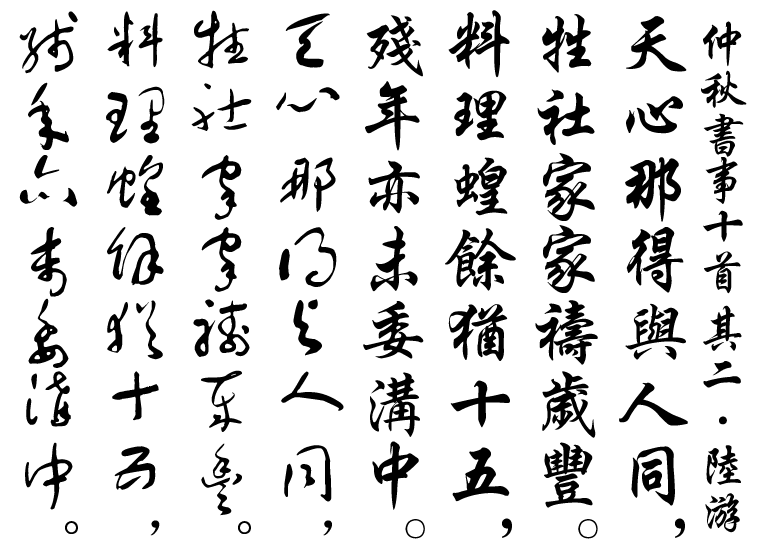 仲秋書事十首其二・陸游
天心那得與人同，
牲社家家禱歲豐。
料理蝗餘猶十五，
殘年亦未委溝中。
天心那得與人同，
牲社家家禱歲豐。
料理蝗餘猶十五，
殘年亦未委溝中。